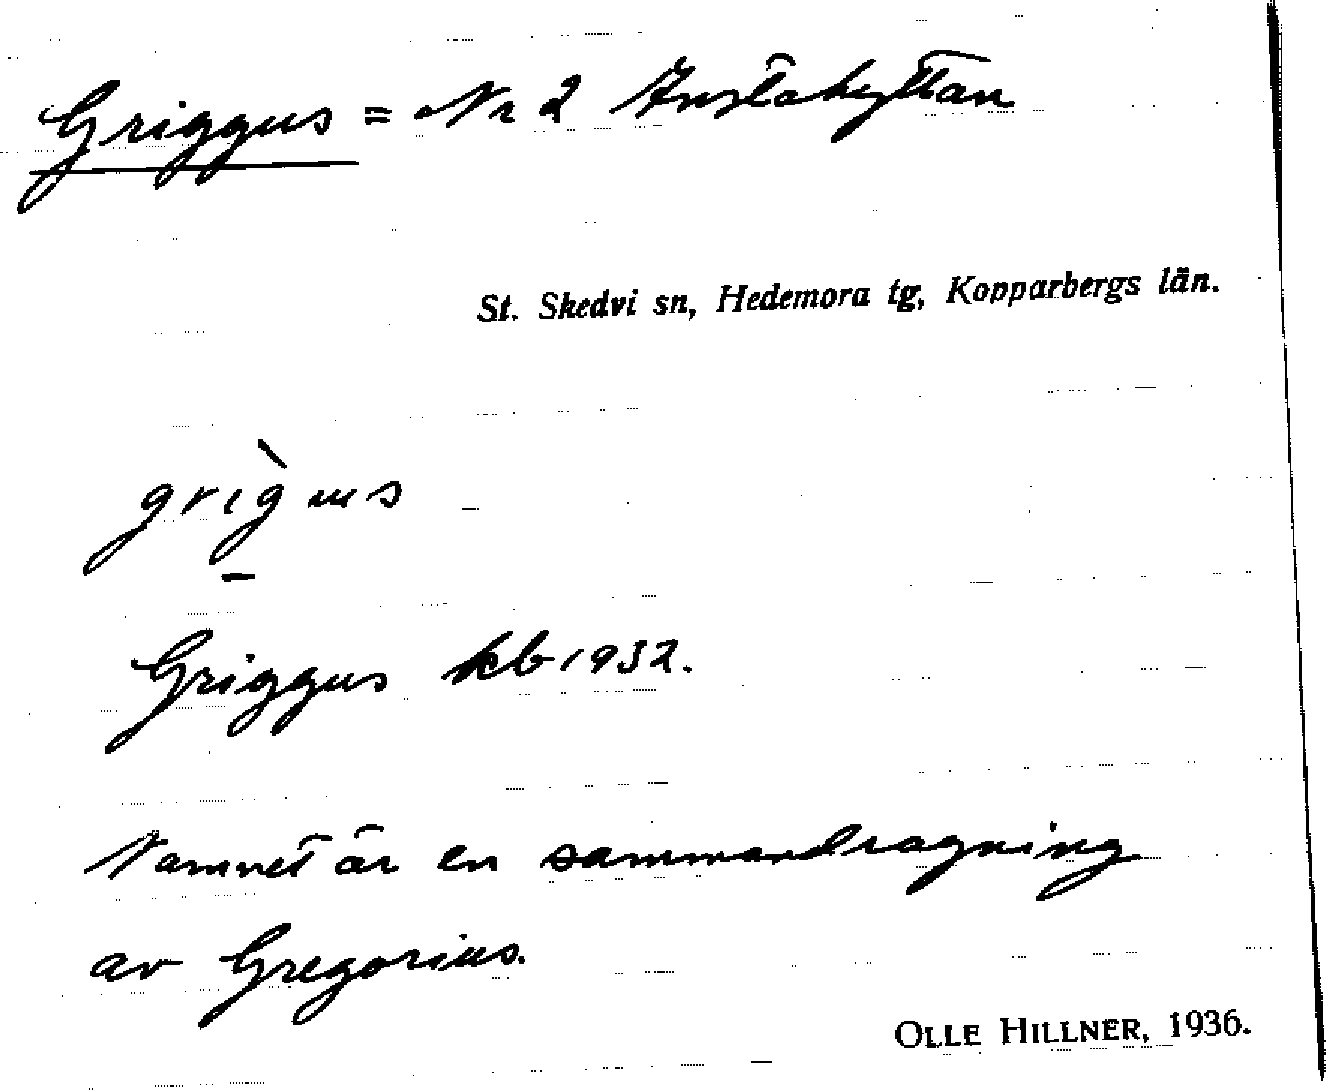 Griggus = Nr 2 Instahyttan
St. Skedvi sn, Hedemora tg, Kopparbergs län.
grìgus
Griggus kb 1932.
Namnet är en sammandragning
av Gregorius.
OLLE HILLNER, 1936.